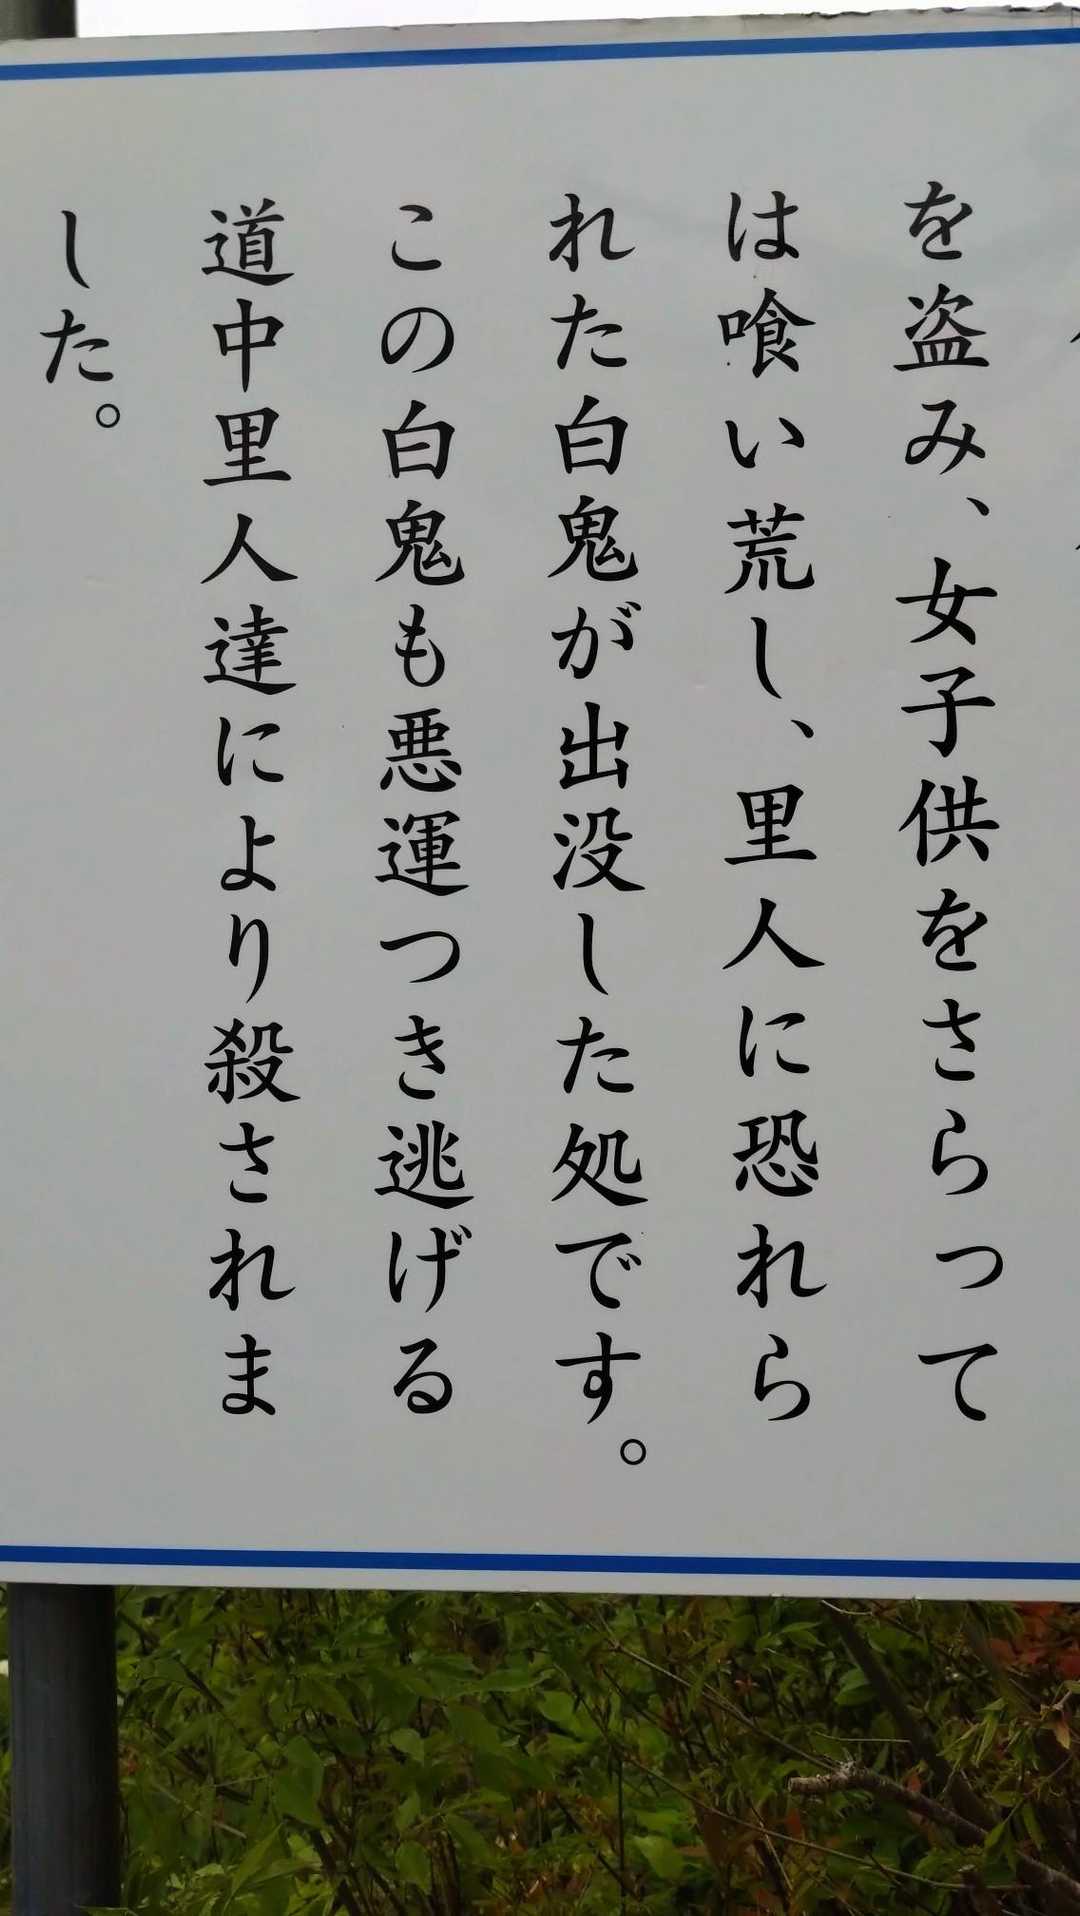 を盗み、女子供をさらって
は喰い荒し、里人に恐れら
れた白鬼が出没した処です。
この白鬼も悪運つき逃げる
道中里人達により殺されま
した。